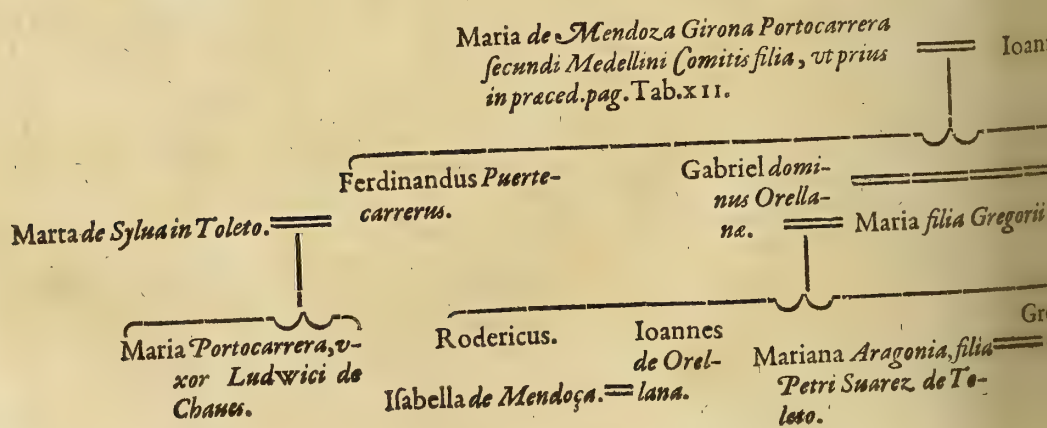 Maria de Mendoza Girona Portocarrera
ſecundi Medellini Comitis filia, vt prius
in præced. pag. Tab. XII.
Ioan
Ferdinandus Puerte-
carrerus.
Gabriel domi-
nus Orella-
næ.
Marta de Sylua in Toleto.
Maria filia Gregorii
Maria Portocarrera, v-
xor Ludwici de
Chaues.
Rodericus.
Iſabella de Mendoça.
Ioannes
de Orel-
lana.
Mariana Aragonia, filia
Petri Suarez de To-
leto.
Gre